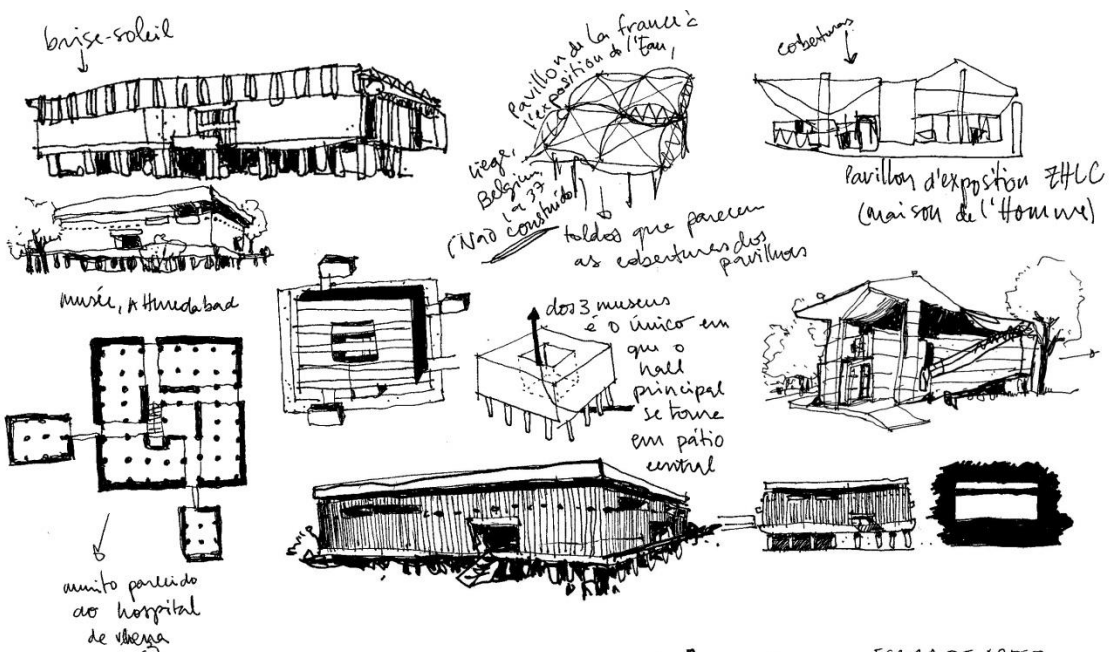 brise-soleil
Pavillon de la france à
l'exposition de l'Eau,
Liège,
Belgium,
(Não construído)
toldos que parecem
as coberturas dos
pavilhões
coberturas
Pavillon d'exposition ZHLC
(maison de l'Homme)
musée, Ahmedabad
dos 3 museus
é o único em
que o
hall
principal
se torna
em pátio
central
muito parecido
ao hospital
de